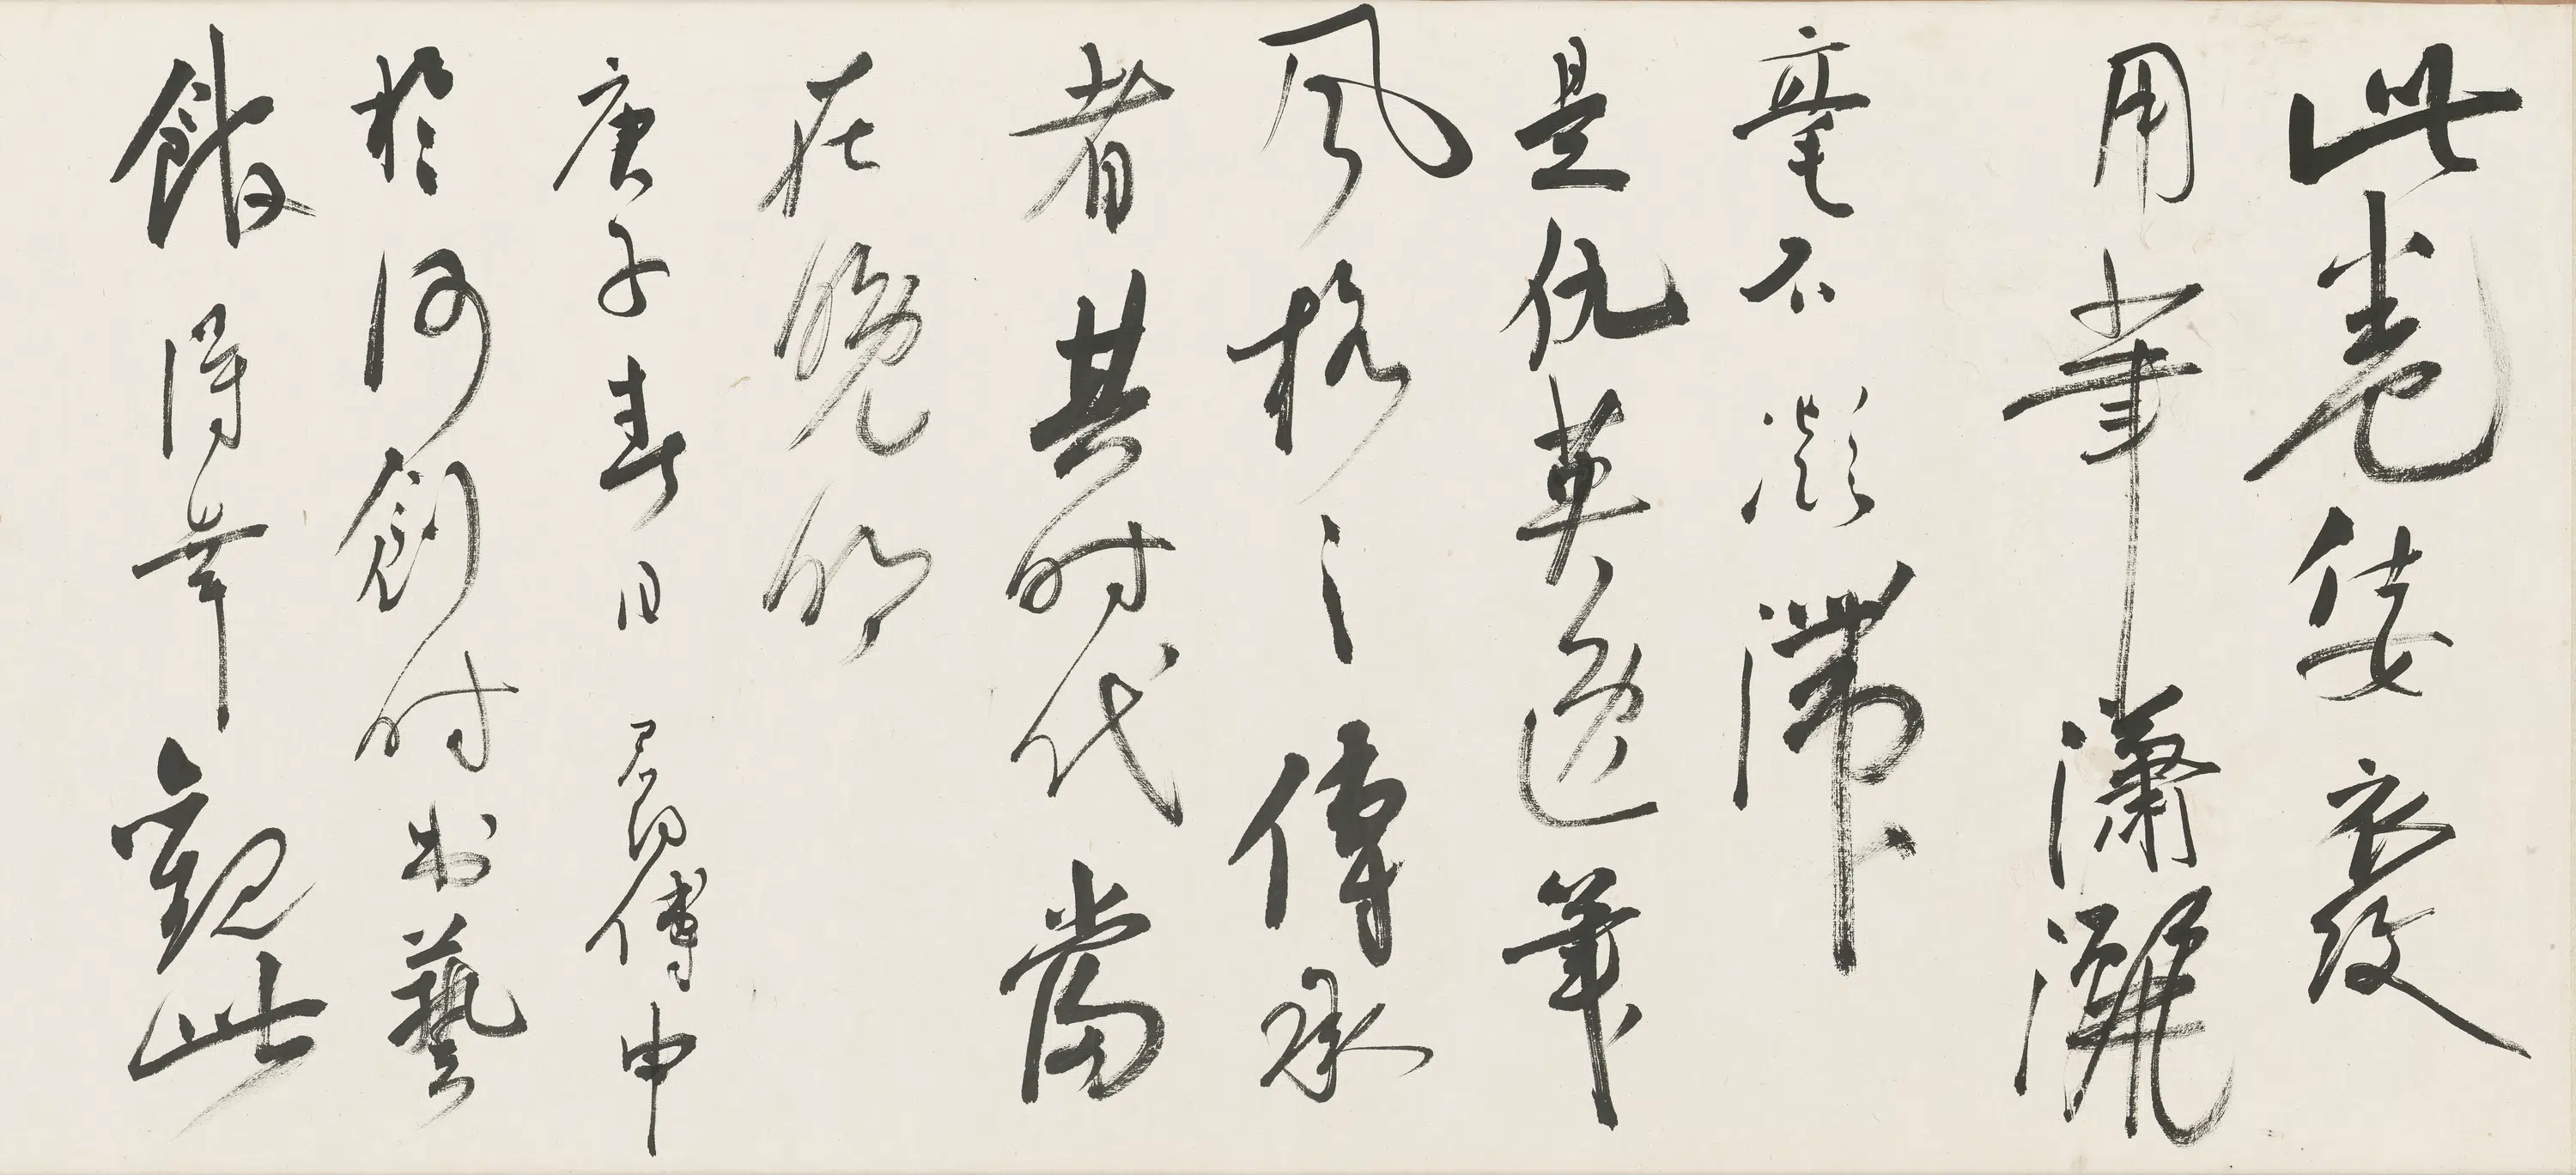 此卷衣紋
用筆瀟灑
毫不凝滯
是仇英逸筆
風格之傳承
者其時代當
在晚明
庚子春日君約傅申
於何創時書藝
館得幸觀此